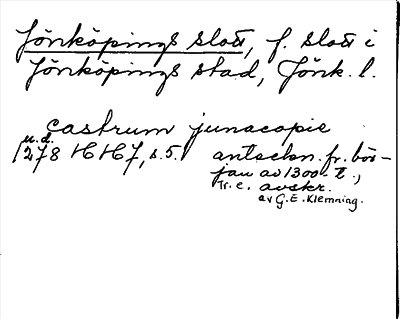 Jönköpings slott, f. slott i
Jönköpings stad, Jönk. l.
castrum junacopie
u.d.
1278 HH7, s.5. anteckn. fr. bör-
jan av 1300-t.,
tr. e. avskr.
av G.E. Klemming.